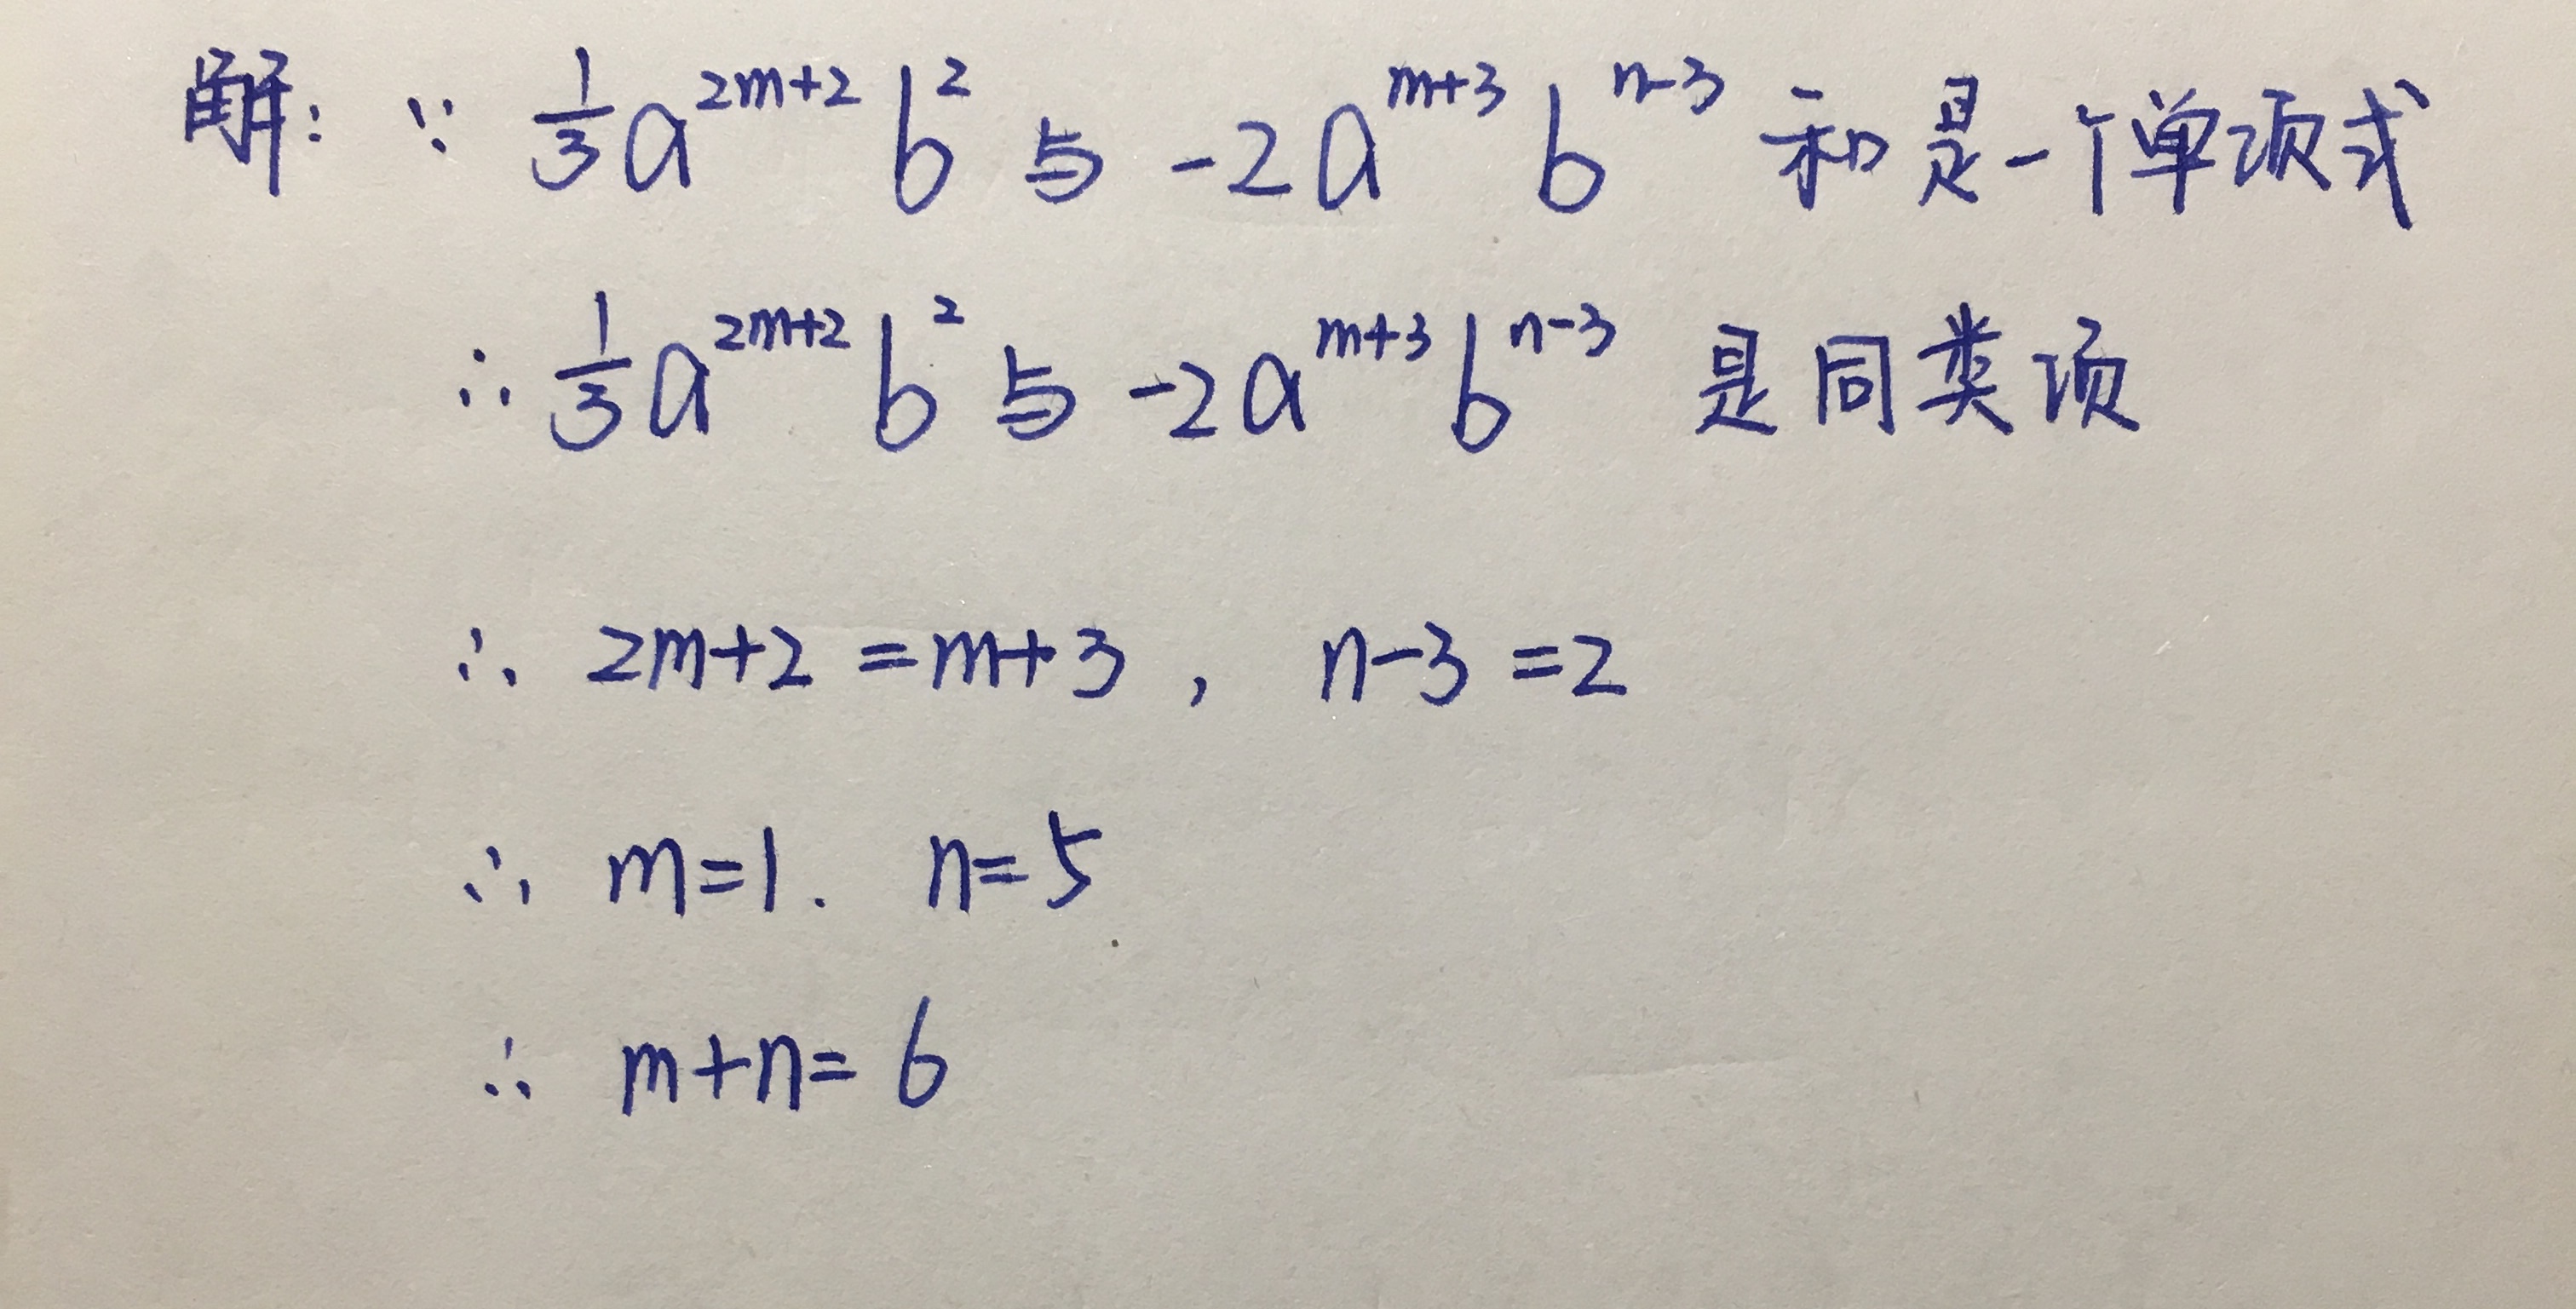 解: ∵ 1/3 a^{2m+2} b^2 与 -2a^{m+3} b^{n-3} 和是一个单项式
∴ 1/3 a^{2m+2} b^2 与 -2a^{m+3} b^{n-3} 是同类项
∴ 2m+2=m+3, n-3=2
∴ m=1. n=5
∴ m+n=6